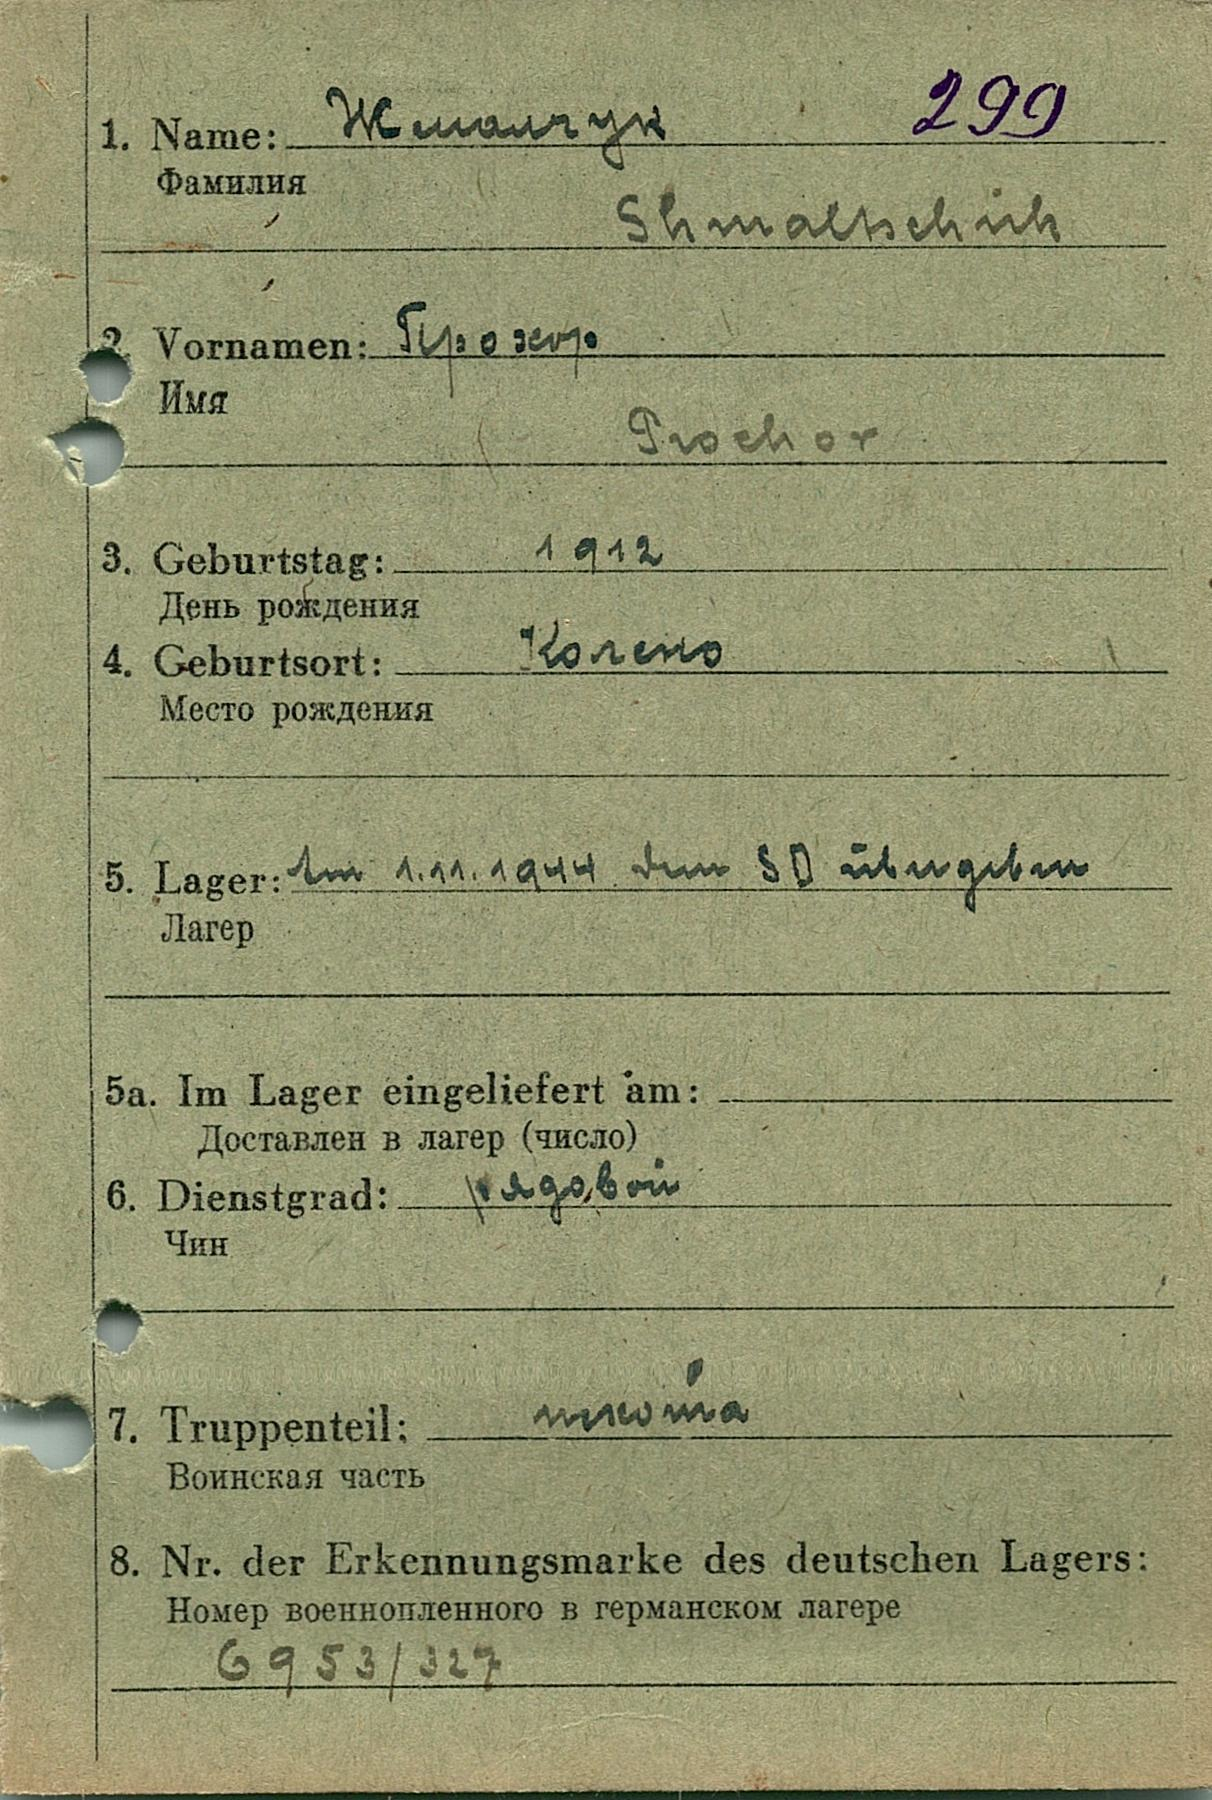 1. Name: Жмальчук 299
Фамилия
Shmaltschuk
2. Vornamen: Прохор
Имя
Prochor
3. Geburtstag: 1912
День рождения
4. Geburtsort: Колено
Место рождения
5. Lager: Am 1.11.1944 dem SD übergeben
Лагерь
5a. Im Lager eingeliefert am:
Доставлен в лагер (число)
6. Dienstgrad: рядовой
Чин
7. Truppenteil: пехота
Воинская часть
8. Nr. der Erkennungsmarke des deutschen Lagers:
Номер военнопленного в германском лагере
6953/327